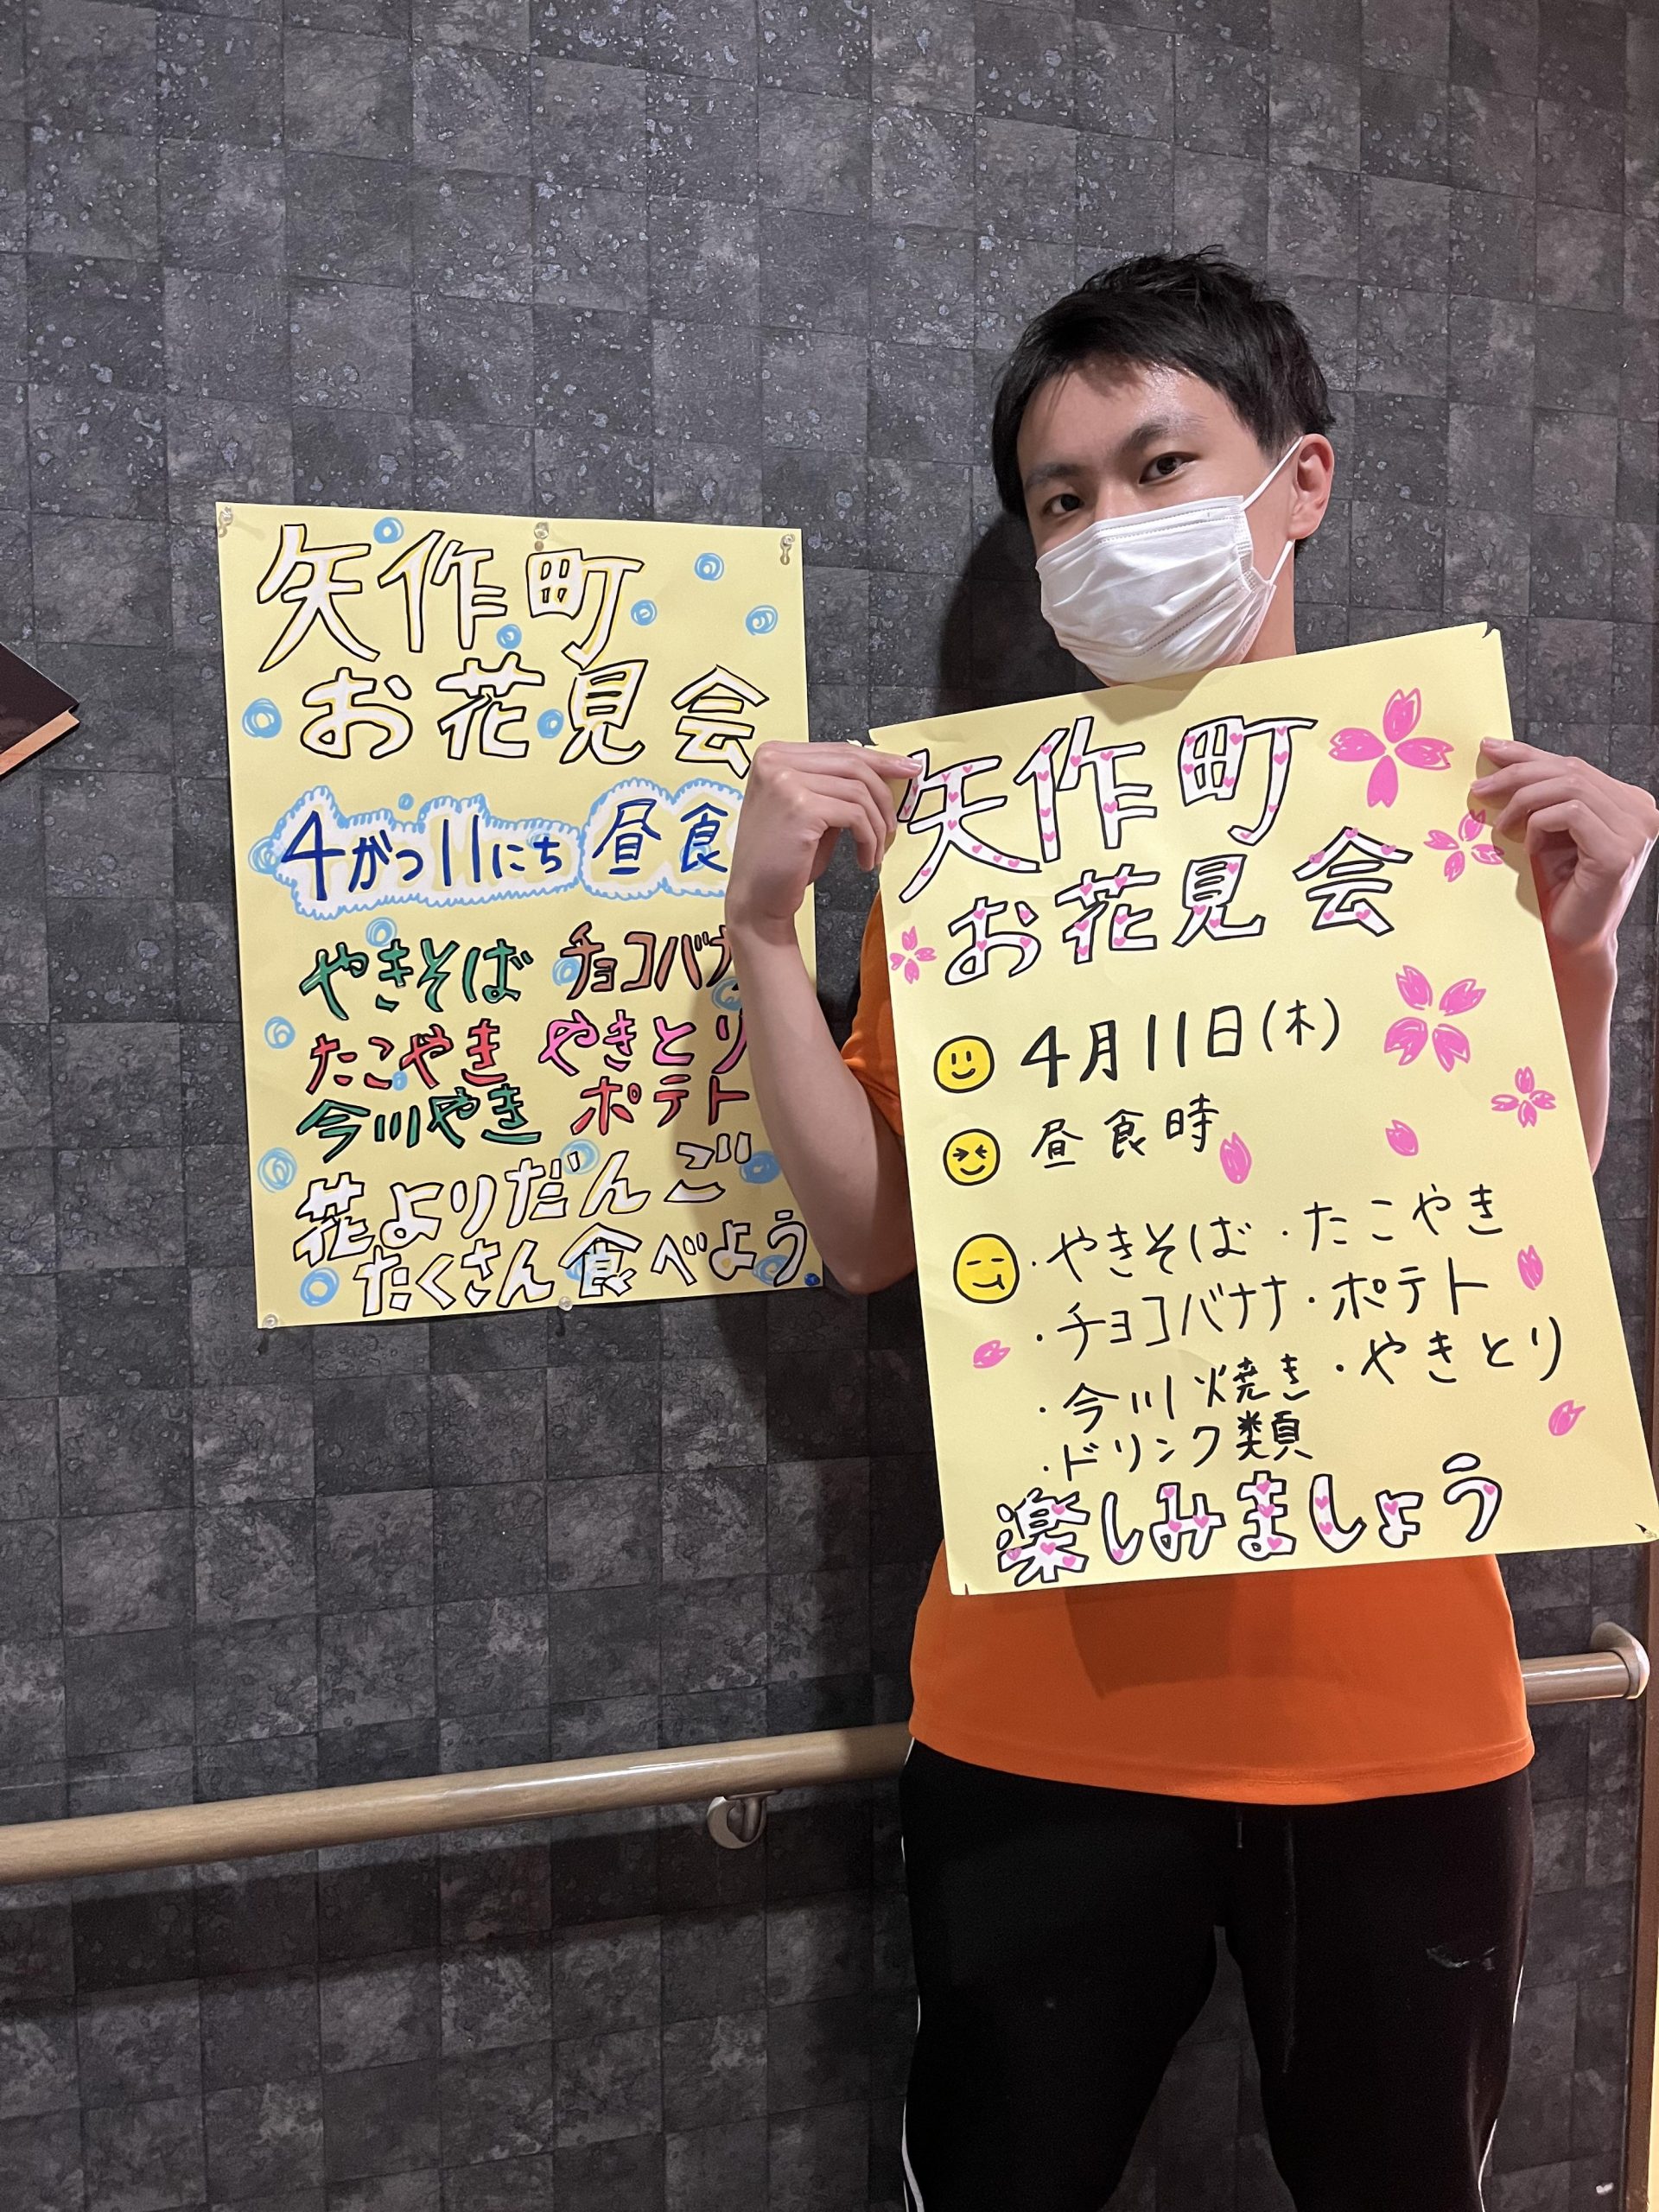 矢作町
お花見会
4がつ11にち 昼食
やきそば チョコバナ
たこやき やきとり
今川やき ポテト
花よりだんご
たくさん食べよう
矢作町
お花見会
4月11日(木)
昼食時
・やきそば ・たこやき
・チョコバナナ・ポテト
・今川焼き・やきとり
・ドリンク類
楽しみましょう